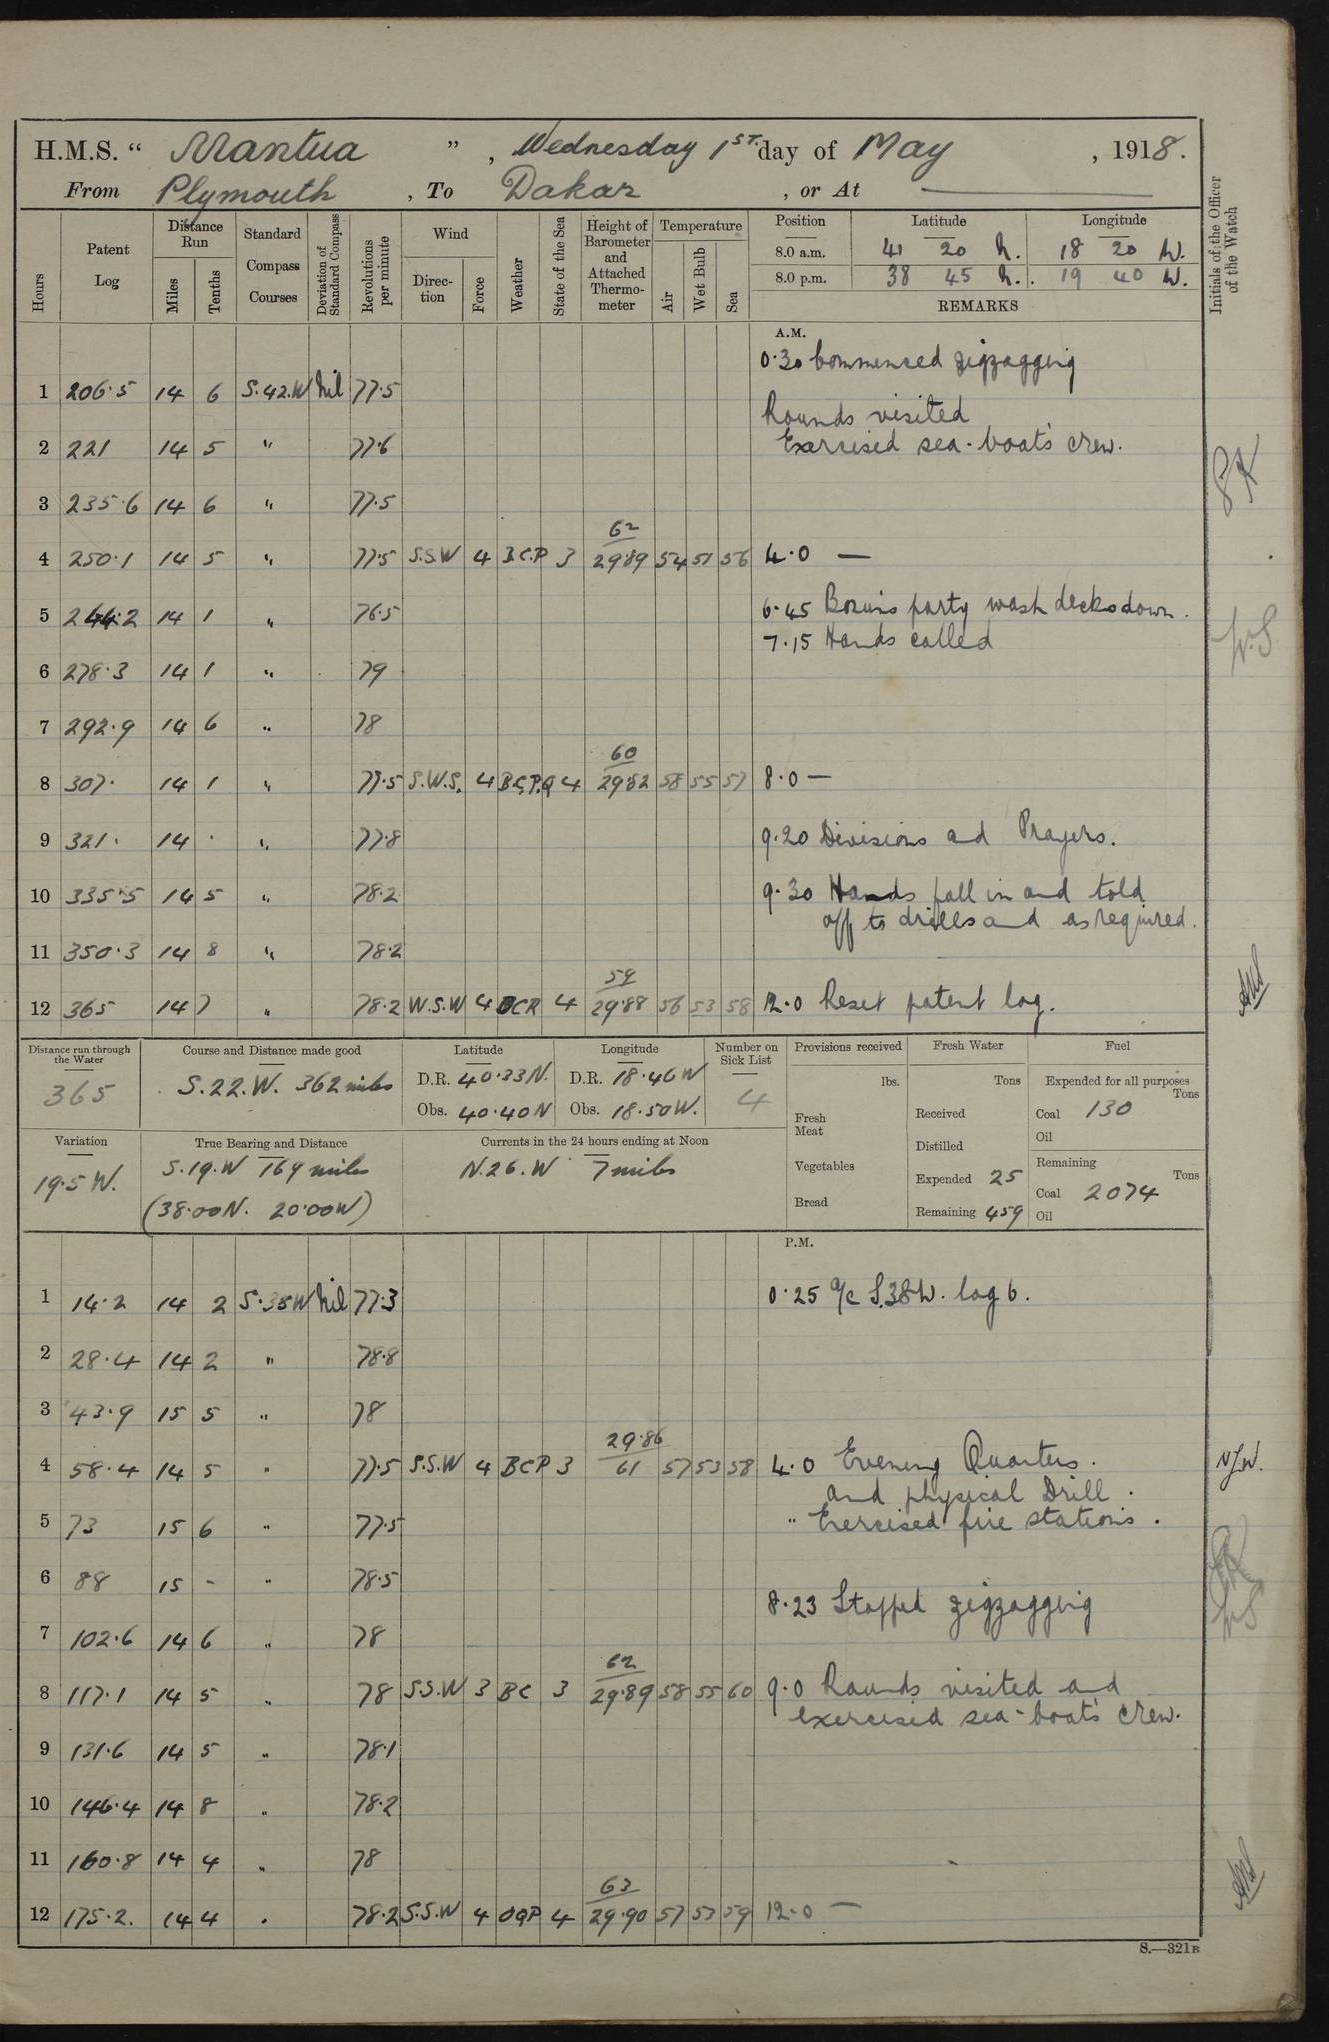 H.M.S. “ Mantua ” , Wednesday 1ST day of May , 1918.
From Plymouth , To Dakar , or At ———
Hours
Patent Log
Distance Run
Miles
Tenths
Standard Compass Courses
Deviation of Standard Compass
Revolutions per minute
Wind
Direction
Force
Weather
State of the Sea
Height of Barometer and Attached Thermometer
Temperature
Air
Wet Bulb
Sea
Position Latitude Longitude
8.0 a.m. 41 20 N. 18 20 W.
8.0 p.m. 38 45 N. 19 40 W.
REMARKS
Initials of the Officer of the Watch
A.M.
0.30 Commenced zigzagging
1 206.5 14 6 S.42.W Nil 77.5
Rounds visited
2 221 14 5 " 77.6 Exercised sea-boat's crew.
3 235.6 14 6 " 77.5
62
4 250.1 14 5 " 77.5 S.S.W 4 B.C.P 3 29.89 54 51 56 4.0 —
5 264.2 14 1 " 76.5 6.45 Bosun's party wash decks down.
7.15 Hands called
W.S
6 278.3 14 1 " 79
7 292.9 14 6 " 78
60
8 307. 14 1 " 77.5 S.W.S. 4 B.C,P.Q 4 29.82 58 55 57 8.0 —
9 321. 14 . " 77.8 9.20 Divisions and Prayers.
10 335.5 14 5 " 78.2 9.30 Hands fall in and told
off to drills and as required.
11 350.3 14 8 " 78.2
59
12 365 14 7 " 78.2 W.S.W 4 BCR 4 29.88 56 53 58 12.0 Reset patent log.
Distance run through the Water
365
Course and Distance made good
S.22.W. 362 miles
Latitude
D.R. 40.33N.
Obs. 40.40N
Longitude
D.R. 18.46W
Obs. 18.50W.
Number on Sick List
4
Provisions received
lbs.
Fresh Meat
Vegetables
Bread
Fresh Water
Tons
Received
Distilled
Expended 25
Remaining 459
Fuel
Expended for all purposes
Tons
Coal 130
Oil
Remaining
Tons
Coal 2074
Oil
Variation
19.5 W.
True Bearing and Distance
S.19.W 169 miles
(38.00N. 20.00W)
Currents in the 24 hours ending at Noon
N.26.W 7 miles
P.M.
1 14.2 14 2 S.38W Nil 77.3 0.25 a/c S.38W. log 6.
2 28.4 14 2 " 78.8
3 43.9 15 5 " 78
29.86
4 58.4 14 5 " 77.5 S.S.W 4 BCP 3 61 57 53 58 4.0 Evening Quarters.
and physical Drill.
5 73 15 6 " 77.5 " Exercised fire stations.
6 88 15 - " 78.5
8.23 Stopped zigzagging
7 102.6 14 6 " 78
62
8 117.1 14 5 " 78 S.S.W 3 BC 3 29.89 58 55 60 9.0 Rounds visited and
exercised sea-boat's crew.
9 131.6 14 5 " 78.1
10 146.4 14 8 " 78.2
11 160.8 14 4 " 78
63
12 175.2. 14 4 " 78.2 S.S.W 4 OQP 4 29.90 57 53 59 12.0 —
S.—321B